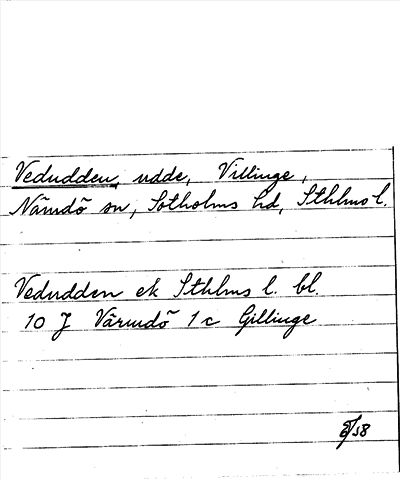 Vedudden, udde, Villinge,
Nämdö sn, Sotholms hd, Sthlms l.
Vedudden ek Sthlms l. bl.
10 J Värmdö 1c Gillinge
/58